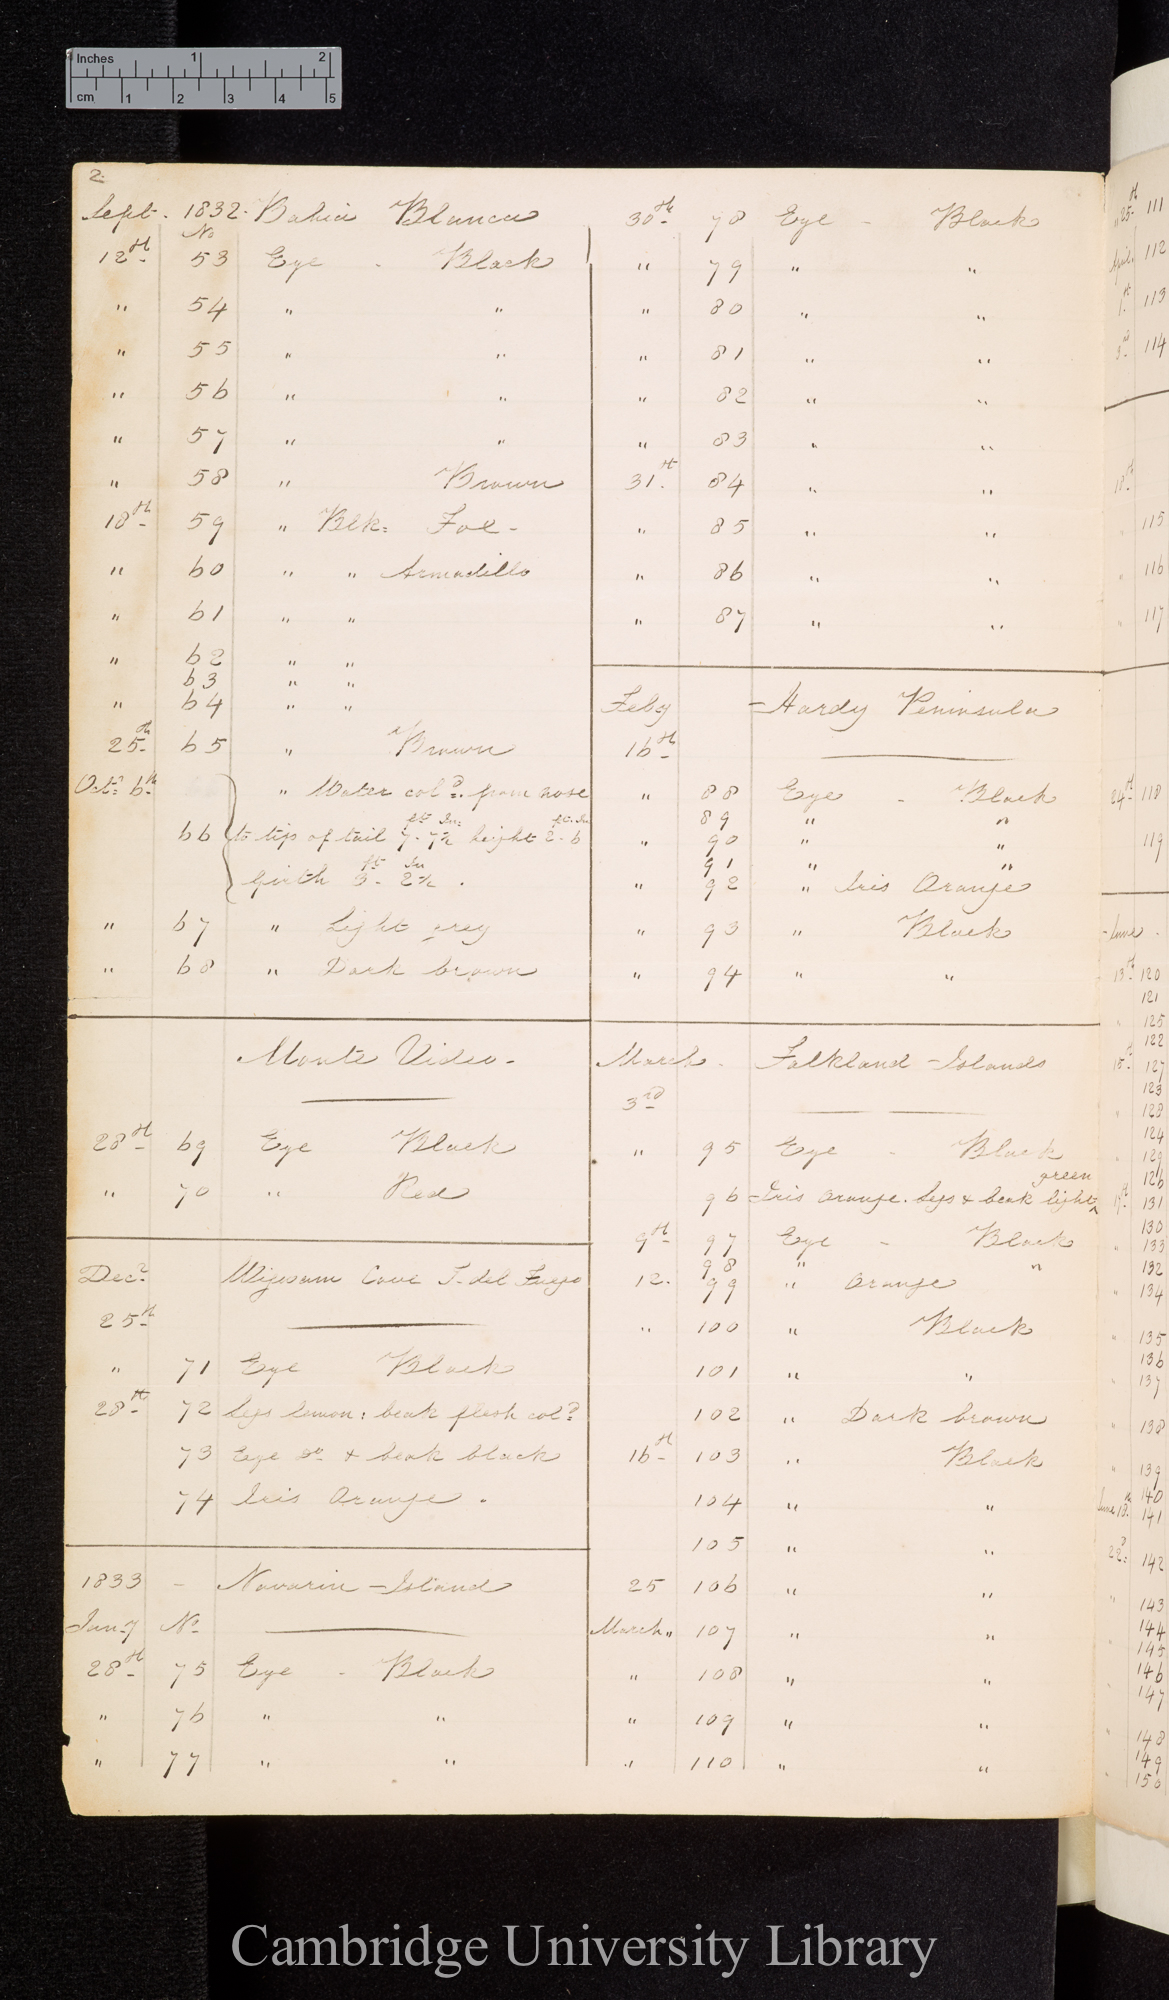 Inches 1 2
cm 1 2 3 4 5
2.
Sept. 1832. Bahia Blanca
No
12th 53 Eye - Black
" 54 " "
" 55 " "
" 56 " "
" 57 " "
" 58 " Brown
18th 59 " Blk: Foe -
" 60 " " Armadillo
" 61 " "
" 62 " "
63 " "
" 64 " "
25th 65 " Brown
Octr 6th " Water cold. from nose
66 to tip of tail 7 ft. 7½ In: height 2 ft. 6 In
girth 3 ft. 2½ In.
" 67 " Light grey
" 68 " Dark brown
Monte Video -
28th 69 Eye Black
" 70 " Red
Decr Wigwam Cove T. del Fuego
25th
" 71 Eye Black
28th 72 legs lemon: beak flesh cold
73 Eye Do & beak black
74 Iris Orange.
1833 - Navarin Island
Jany No
28th 75 Eye - Black
" 76 " "
" 77 " "
30th 78 Eye - Black
" 79 " "
" 80 " "
" 81 " "
" 82 " "
" 83 " "
31st 84 " "
" 85 " "
" 86 " "
" 87 " "
Feby Hardy Peninsula
16th
" 88 Eye - Black
89 " "
" 90 " "
91 " "
" 92 " Iris Orange
" 93 " Black
" 94 " "
March - Falkland Islands
3rd
" 95 Eye - Black
green
96 Iris Orange. legs & beak light ^
9th 97 Eye - Black
98 " "
12. 99 " Orange
" 100 " Black
101 " "
102 " Dark brown
16th 103 " Black
104 " "
105 " "
25 106 " "
March " 107 " "
" 108 " "
" 109 " "
" 110 " "
" 25th 111
April 112
1st 113
3rd 114
18th
115
" 116
" 117
24th 118
119
June -
13th 120
121
" 125
122
15th 127
123
" 128
124
" 129
126
17th 131
130
" 133
132
" 134
" 135
136
" 137
" 138
" 139
140
June 18th 141
22d 142
" 143
144
" 145
146
" 147
" 148
149
" 150
Cambridge University Library